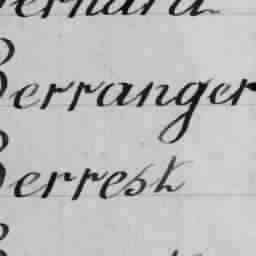 Bernard
Berranger
Berrest